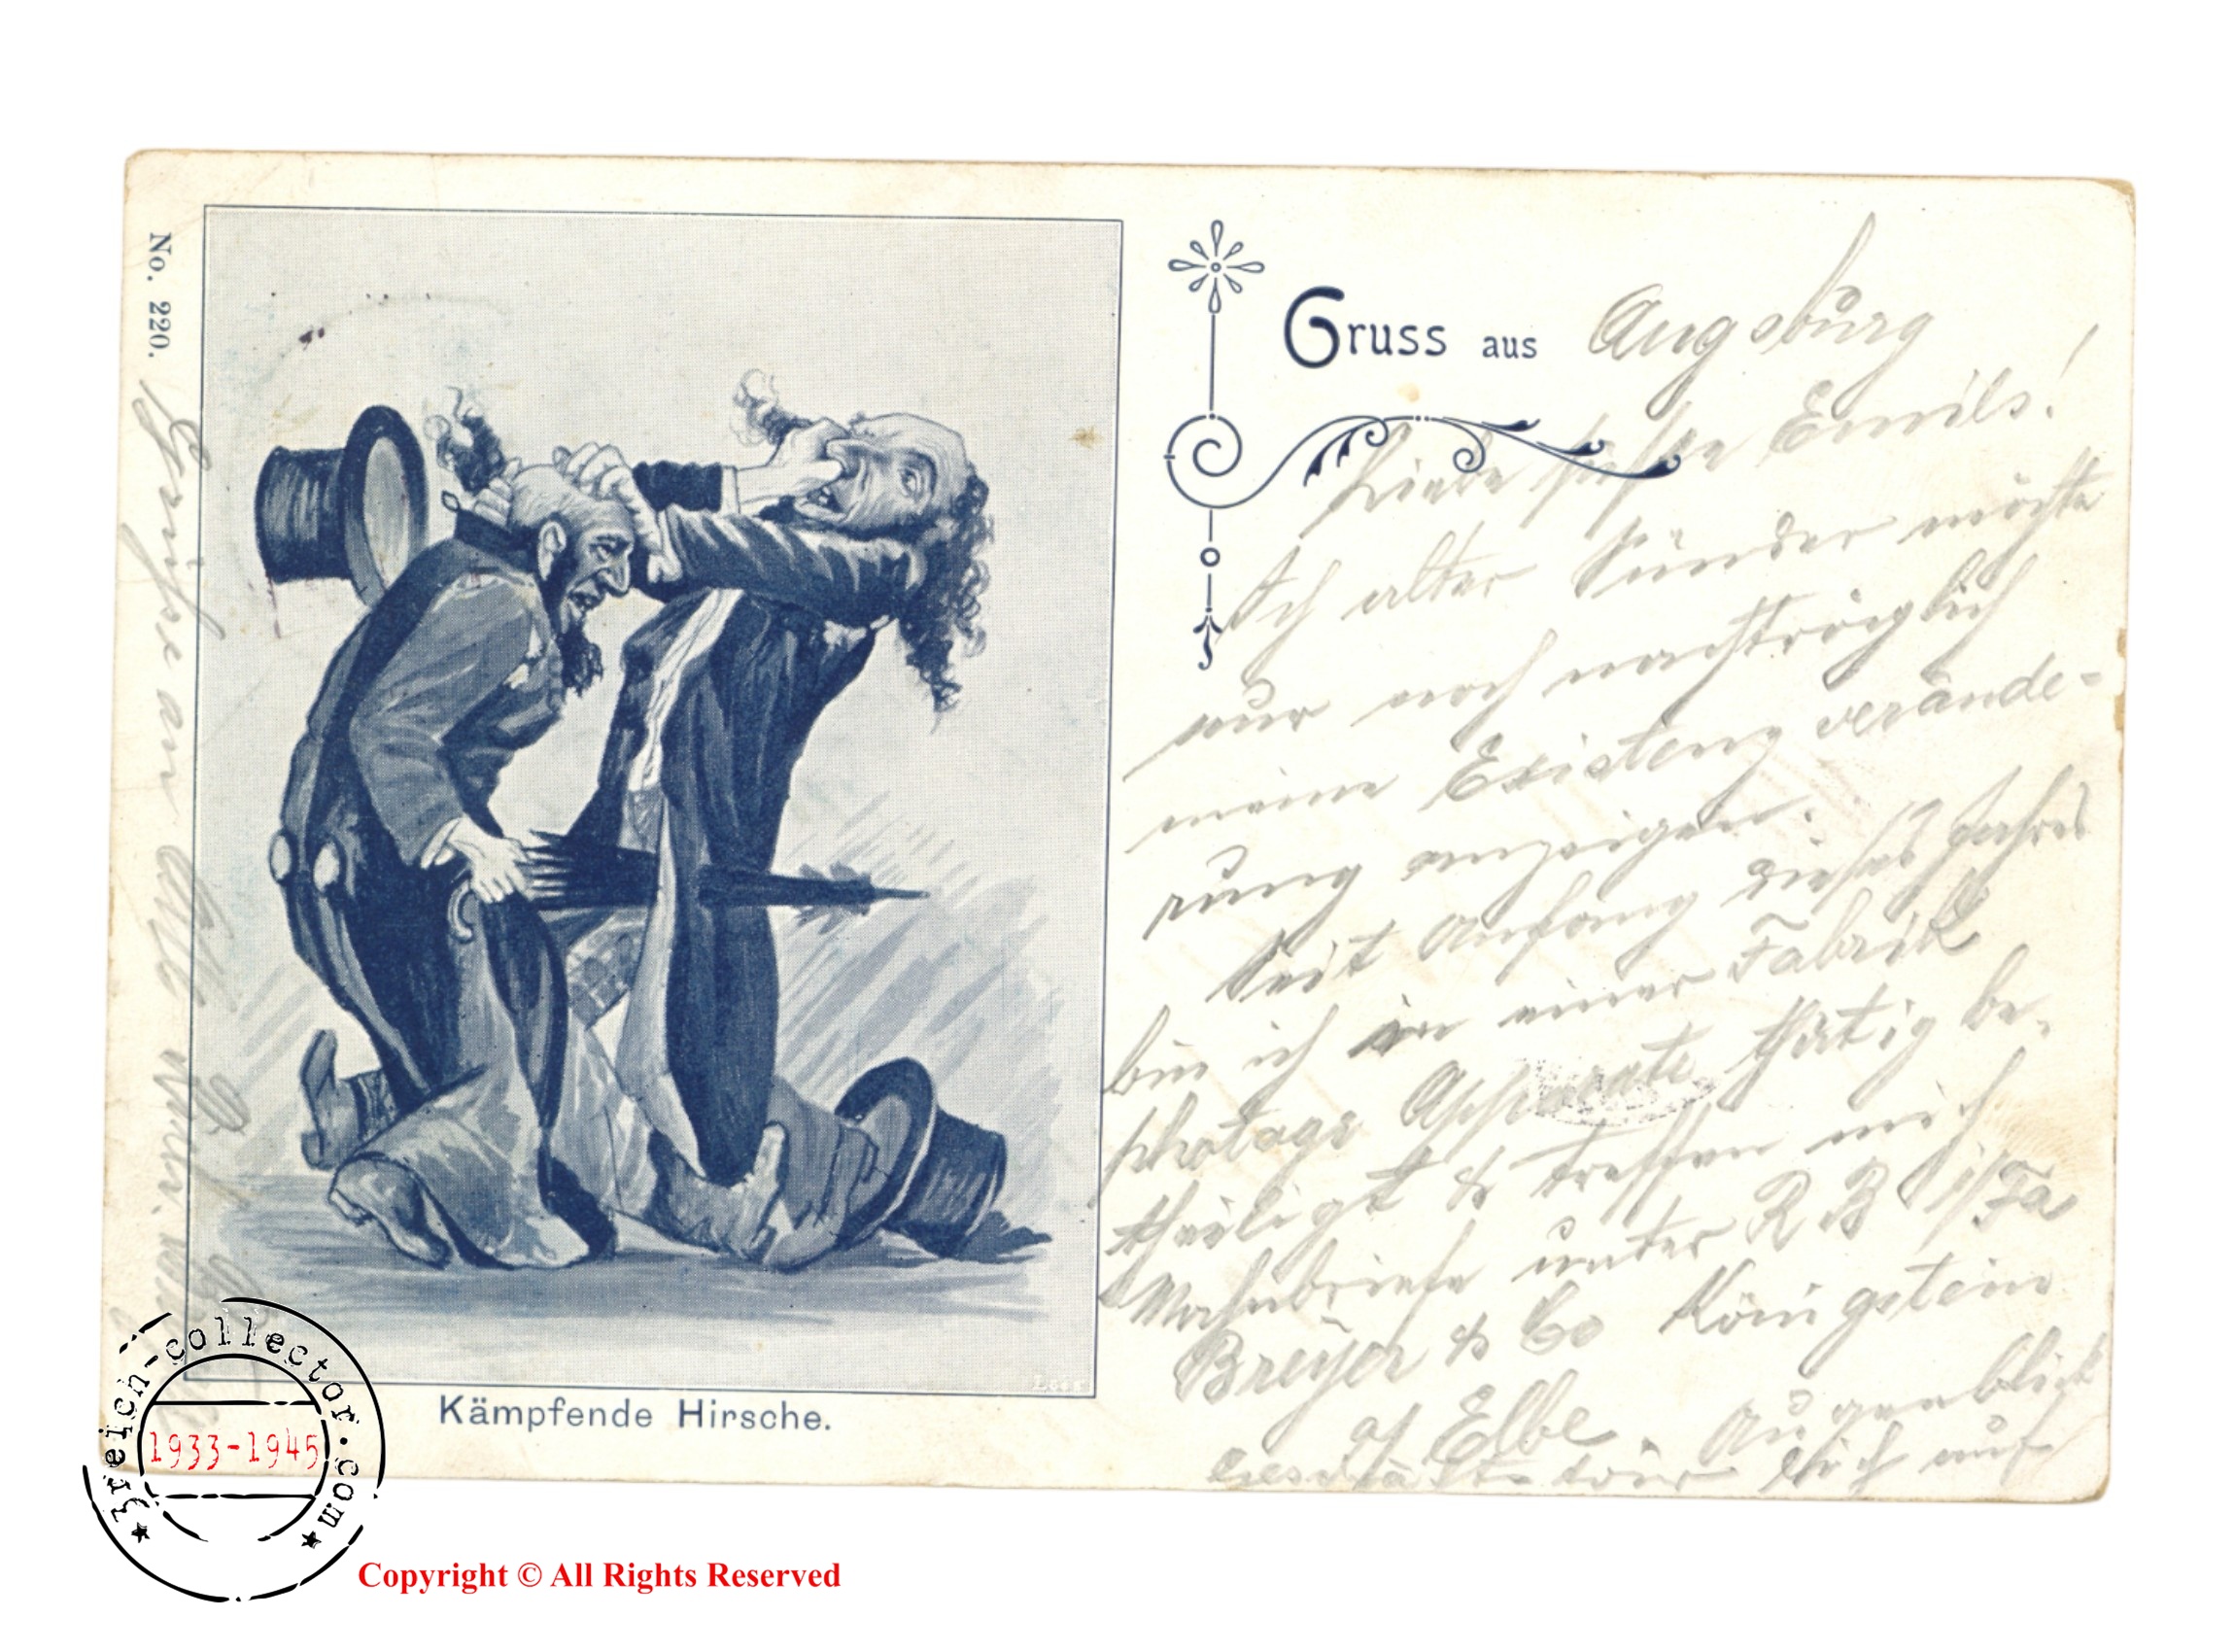 No. 220.
Grüße an Alle
Gruss aus Augsburg
Liebe Emils!
Ich alter Sünder möchte
nur noch nachträglich
meine Existenz verände-
rung anzeigen.
Seit Anfang dieses Jahres
bin ich in einer Fabrik
photogr Apparate thätig be-
theiligt & treffen mich
unter R B
Breyer & Co Königstein
a/ Elbe. Augenblick
auf
Kämpfende Hirsche.
3reich-collector.com
1933-1945
Copyright © All Rights Reserved